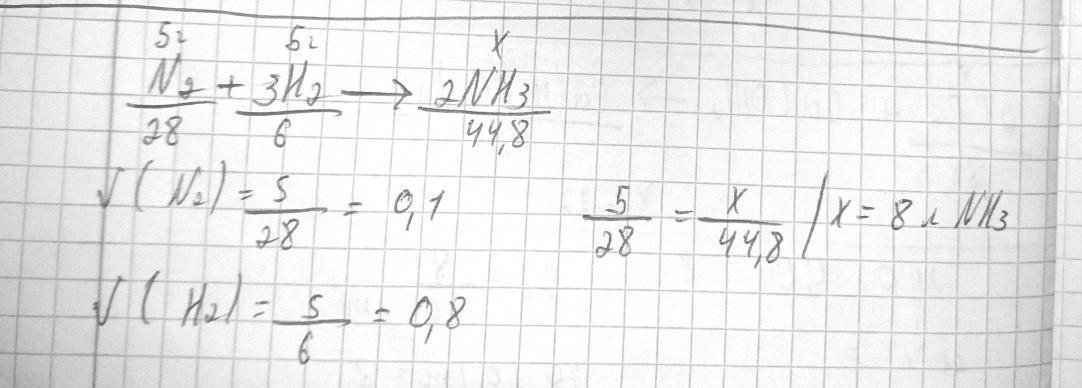 5г 5г x
N₂ + 3H₂ → 2NH₃
28 6 44,8
√(N₂) = 5/28 = 0,1 5/28 = x/44,8 | x = 8 л NH₃
√(H₂) = 5/6 = 0,8